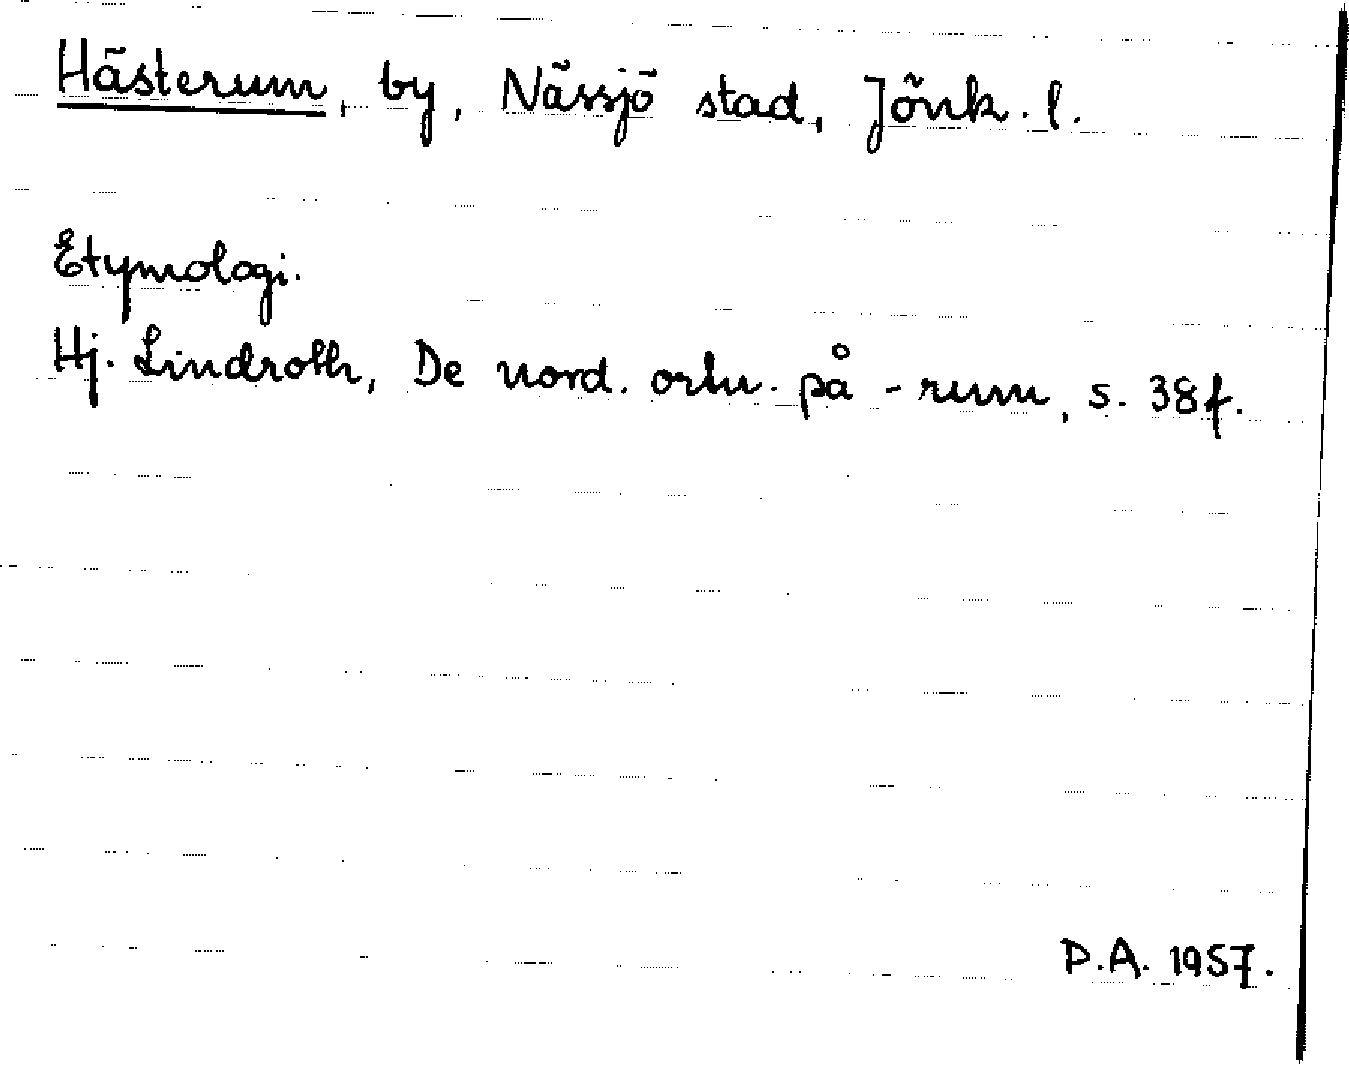 Hästerum, by, Nässjö stad, Jönk. l.
Etymologi.
Hj. Lindroth, De nord. ortn. på -rum, s. 38f.
P.A. 1957.